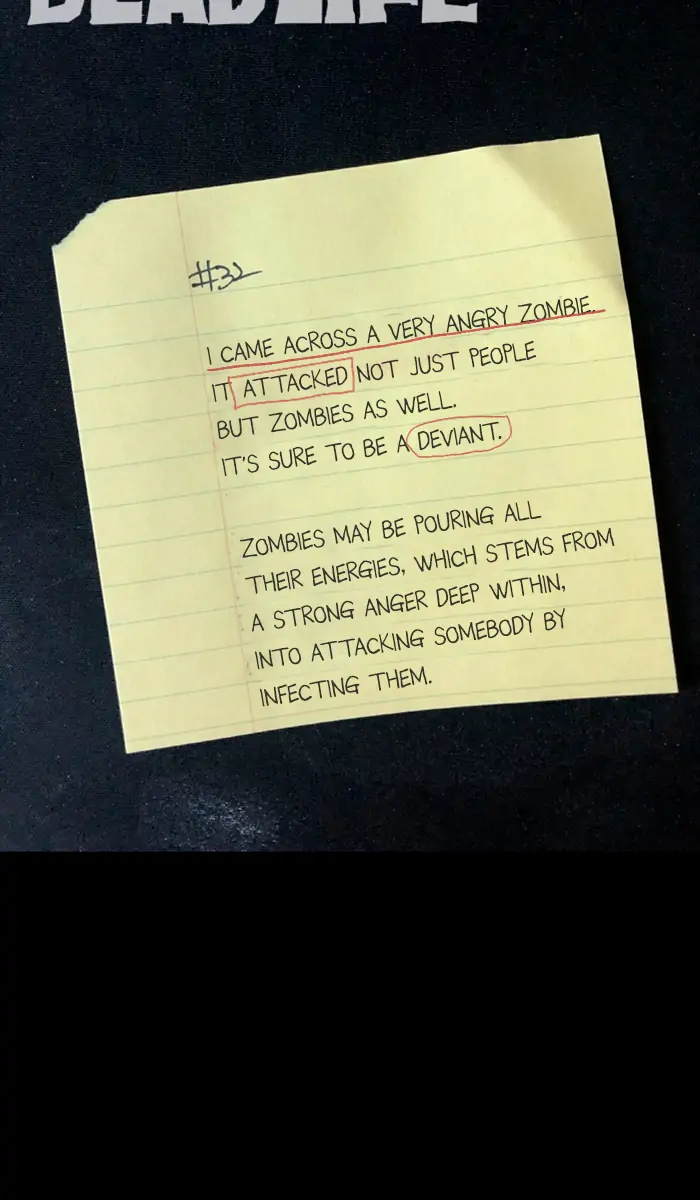 DEADLIFE
#32
I CAME ACROSS A VERY ANGRY ZOMBIE.
IT ATTACKED NOT JUST PEOPLE
BUT ZOMBIES AS WELL.
IT'S SURE TO BE A DEVIANT.
ZOMBIES MAY BE POURING ALL
THEIR ENERGIES, WHICH STEMS FROM
A STRONG ANGER DEEP WITHIN,
INTO ATTACKING SOMEBODY BY
INFECTING THEM.